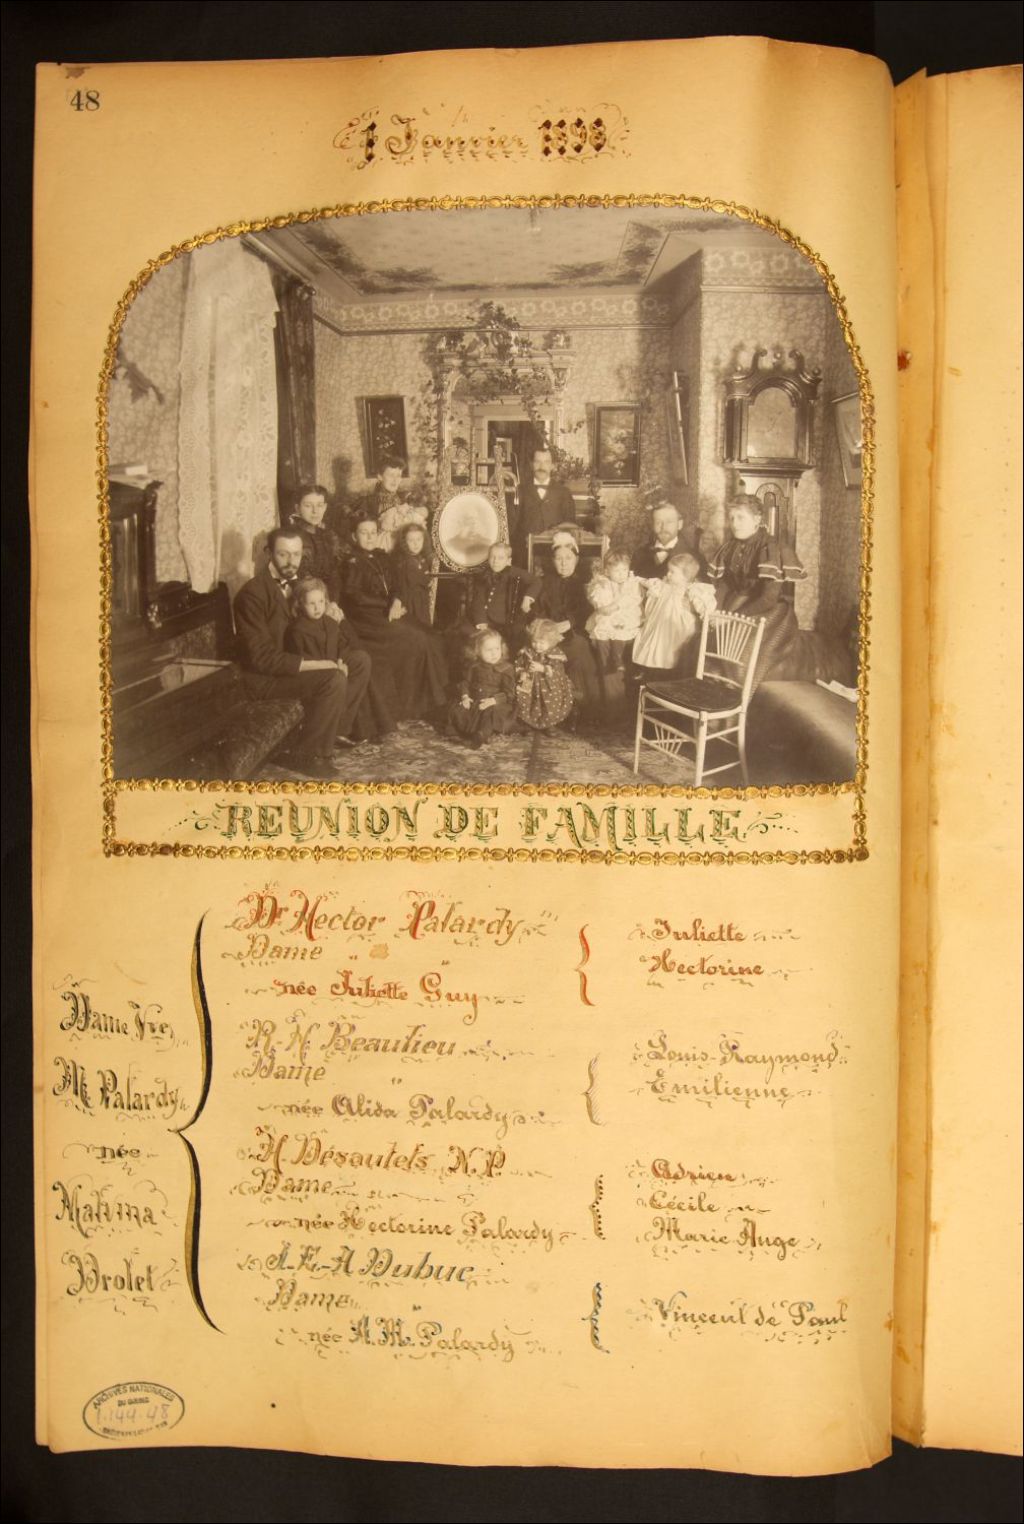 48
1 Janvier 1898
REUNION DE FAMILLE
Dame Vve
M. Palardy
née
Malvina
Drolet
Dr Hector Palardy
Dame " "
née Juliette Guy
R-N. Beaulieu
Dame "
née Alida Palardy
H. Désautels N.P.
Dame "
née Hectorine Palardy
J-E-A Dubuc
Dame "
née A. M. Palardy
Juliette
Hectorine
Louis-Raymond
Emilienne
Adrien
Cécile
Marie Ange
Vincent de Paul
ARCHIVES NATIONALES
DU QUEBEC
1-144-48